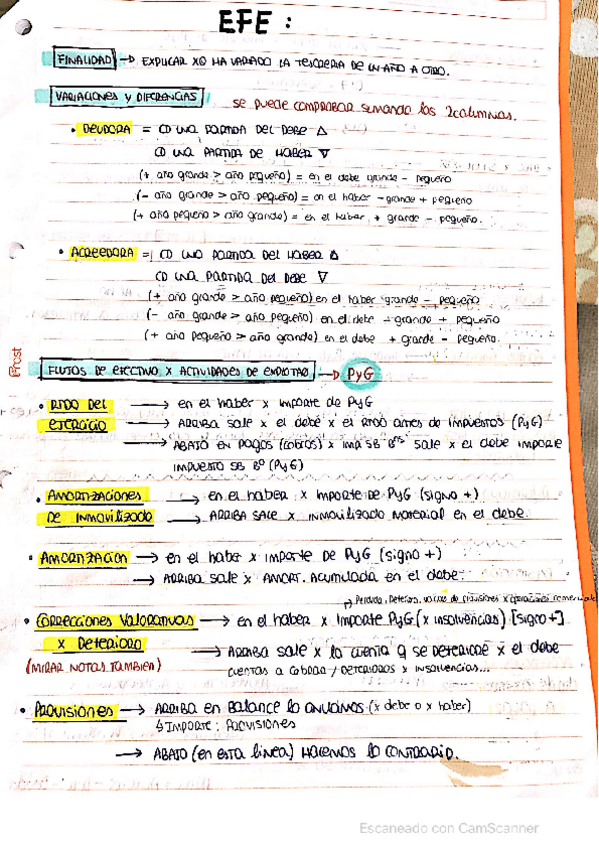 EFE :
FINALIDAD → EXPLICAR XQ HA VARIADO LA TESORERIA DE UN AÑO A OTRO.
VARIACIONES y DIFERENCIAS
se puede comprobar sumando las 2 columnas.
• DEUDORA = CD UNA PARTIDA DEL DEBE △
CD UNA PARTIDA DE HABER ▽
(+ año grande > año pequeño) = en el debe grande - pequeño
(- año grande > año pequeño) = en el haber - grande + pequeño
(+ año pequeño > año grande) = en el haber + grande - pequeño.
• ACREEDORA = CD UNO PARTIDA DEL HABER △
CD UNA PARTIDA DEL DEBE ▽
(+ año grande > año pequeño) en el haber grande - pequeño
(- año grande > año pequeño) en el debe - grande + pequeño
(+ año pequeño > año grande) en el debe + grande - pequeño.
FLUJOS DE EFECTIVO X ACTIVIDADES DE EXPLOTAC → PyG
• RTDO DEL EJERCICIO → en el haber x importe de PyG
→ ARRIBA sale x el debe x el RTDO antes de impuestos (PyG)
→ ABAJO en pagos (cobros) x imp SB Bºs sale x el debe importe
IMPUESTO SB Bº (PyG)
• AMORTIZACIONES DE INMOVILIZADO → en el haber x importe de PyG (signo +)
→ ARRIBA SALE X INMOVILIZADO MATERIAL en el debe.
• AMORTIZACION → en el haber x importe de PyG (signo +)
→ ARRIBA sale x AMORT. ACUMULADA en el debe.
↱ Pérdida, Deterioro, de provisiones x operaciones comerciales
• CORRECCIONES VALORATIVAS X DETERIORO → en el haber x importe PyG (x insolvencias) [signo +]
(MIRAR NOTAS TAMBIEN)
→ ARRIBA sale x la cuenta q se deterioré x el debe
cuentas a cobrar / DETERIOROS x insolvencias...
• PROVISIONES → ARRIBA en Balance lo anulamos (x debe o x haber)
↳ IMPORTE: PROVISIONES
→ ABAJO (en esta línea) HACEMOS lo CONTRARIO.
Escaneado con CamScanner